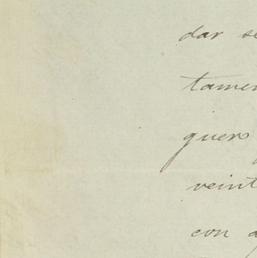 dar se
tamen
quero
veint
con